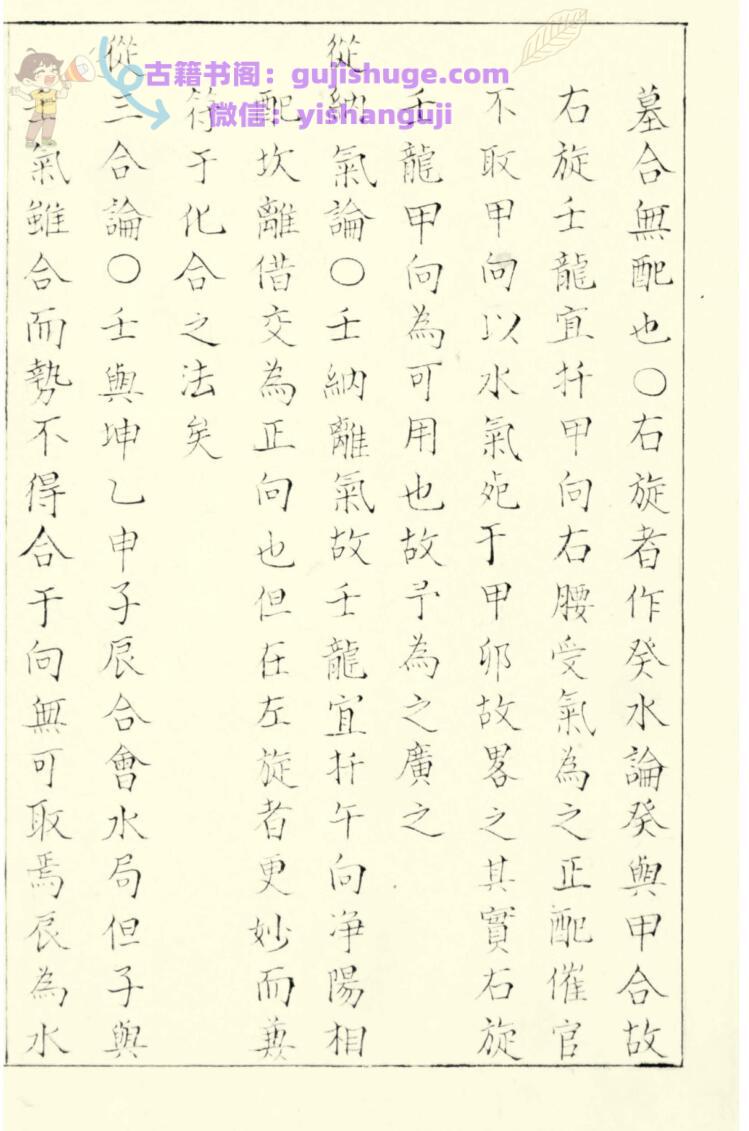 古籍书阁：gujishuge.com
微信：yishanguji
墓合無配也〇右旋者作癸水論癸與甲合故
右旋壬龍宜扦甲向右腰受氣為之正配催官
不取甲向以水氣死于甲卯故畧之其實右旋
壬龍甲向為可用也故予為之廣之
從納氣論〇壬納離氣故壬龍宜扦午向净陽相
配坎離借交為正向也但在左旋者更妙而兼
符于化合之法矣
從三合論〇壬與坤乙申子辰合會水局但子與
氣雖合而勢不得合于向無可取焉辰為水